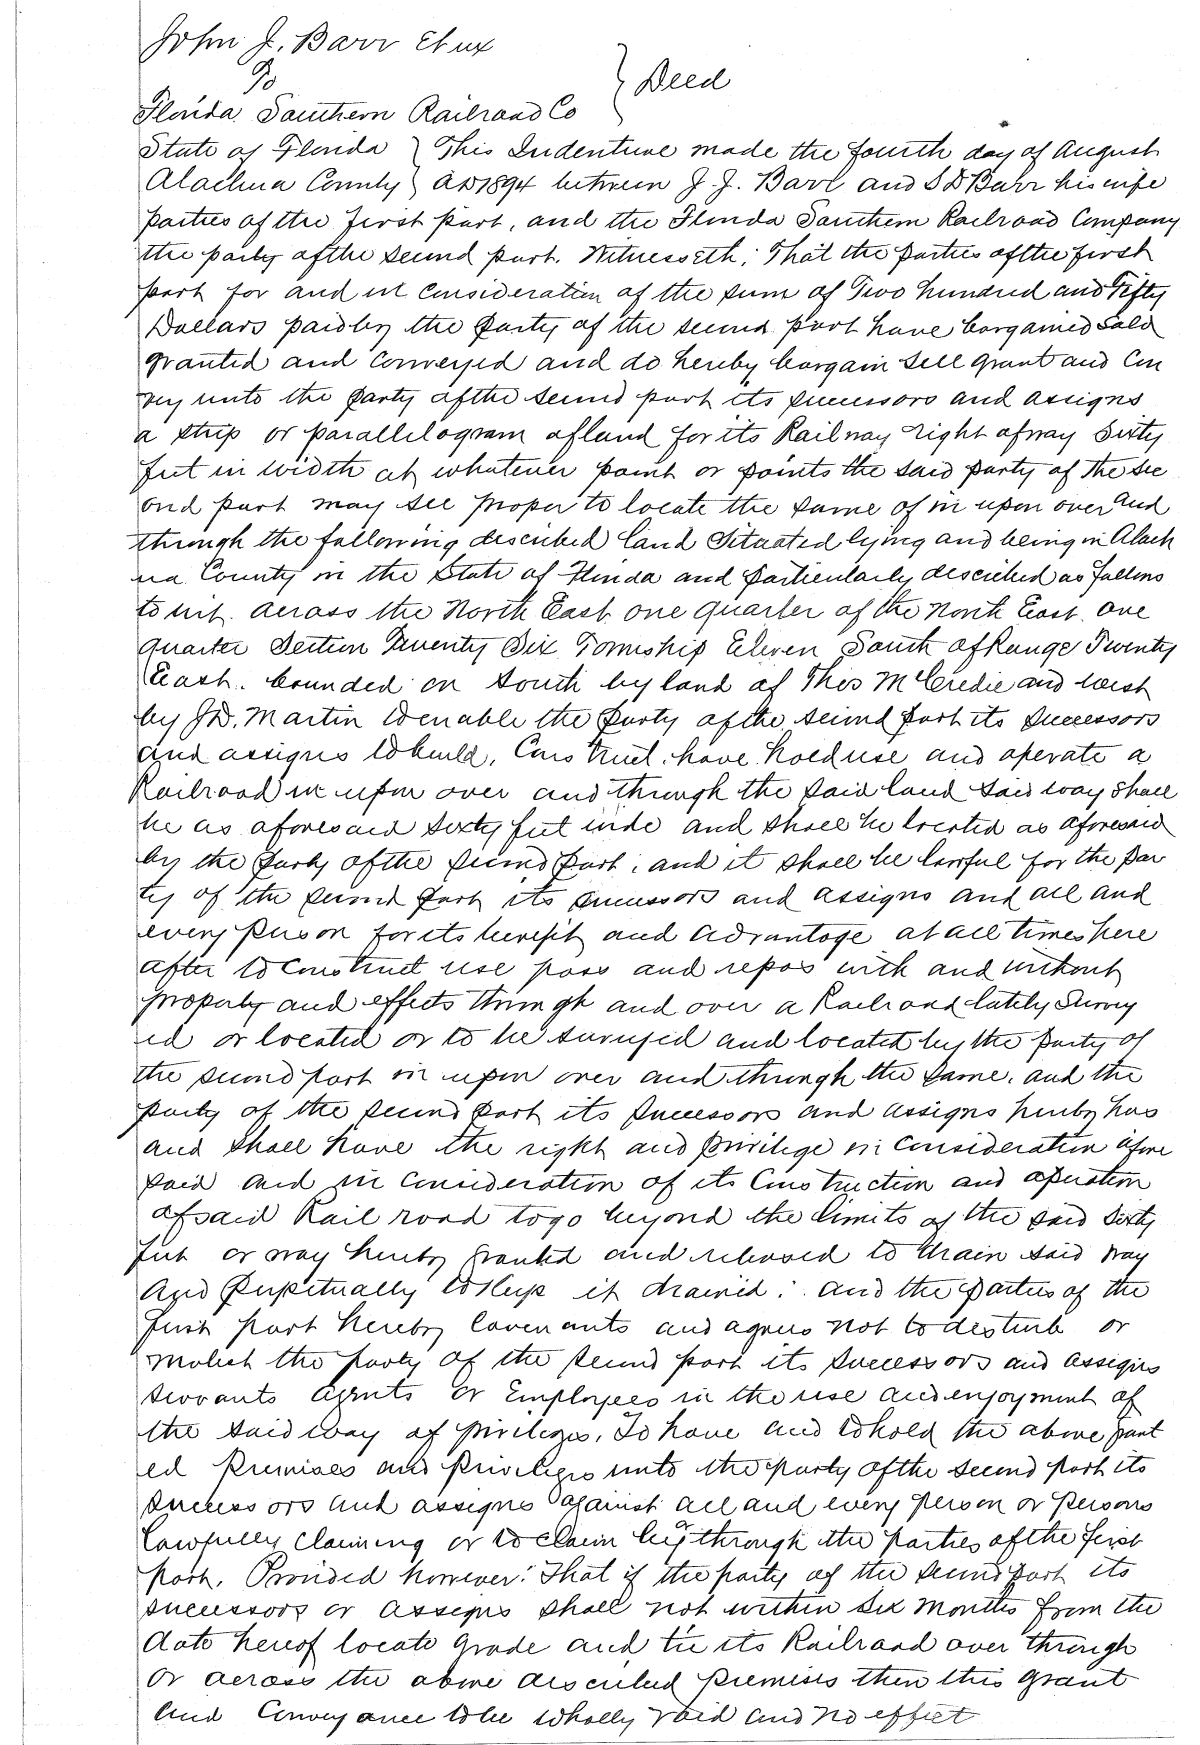 John J. Barr Et ux
To
} Deed
Florida Southern Railroad Co
State of Florida } This Indenture made the fourth day of August
Alachua County } AD 1894 between J. J. Barr and S D Barr his wife
parties of the first part, and the Florida Southern Railroad Company
the party of the second part. Witnesseth; That the parties of the first
part for and in consideration of the sum of Two hundred and Fifty
Dollars paid by the party of the second part have bargained sold
granted and conveyed and do hereby bargain sell grant and con
vey unto the party of the second part its successors and assigns
a strip or parallelogram of land for its Railway right of way sixty
feet in width at whatever point or points the said party of the sec
ond part may see proper to locate the same of in upon over and
through the following described land situated lying and being in Alach
ua County in the State of Florida and particularly described as follows
to wit. across the North East one quarter of the North East one
quarter Section Twenty Six Township Eleven South of Range Twenty
East. bounded on south by land of Thos McCredie and west
by J.D. Martin to enable the party of the second part its successors
and assigns to build, Construct. have hold use and operate a
Railroad in upon over and through the said land said way shall
be as aforesaid sixty feet wide and shall be located as aforesaid
by the party of the second part; and it shall be lawful for the par
ty of the second part its successors and assigns and all and
every person for its benefit and advantage at all times here
after to construct use pass and repass with and without
property and effects through and over a Railroad lately survey
ed or located or to be surveyed and located by the party of
the second part in upon over and through the same. and the
party of the second part its successors and assigns hereby has
and shall have the right and privilege in consideration afore
said and in consideration of its Construction and operation
of said Rail road to go beyond the limits of the said sixty
feet or way hereby granted and released to drain said way
and perpetually to keep it drained: and the parties of the
first part hereby covenants and agrees not to disturb or
molest the party of the second part its successors and assigns
servants agents or Employees in the use and enjoyment of
the said way of privileges, To have and to hold the above grant
ed premises and privileges unto the party of the second part its
successors and assigns against all and every person or persons
lawfully claiming or to claim by or through the parties of the first
part. Provided however: That if the party of the second part its
successors or assigns shall not within six months from the
date hereof locate grade and tie its Railroad over through
or across the above described premises then this grant
and Conveyance to be wholly void and no effect